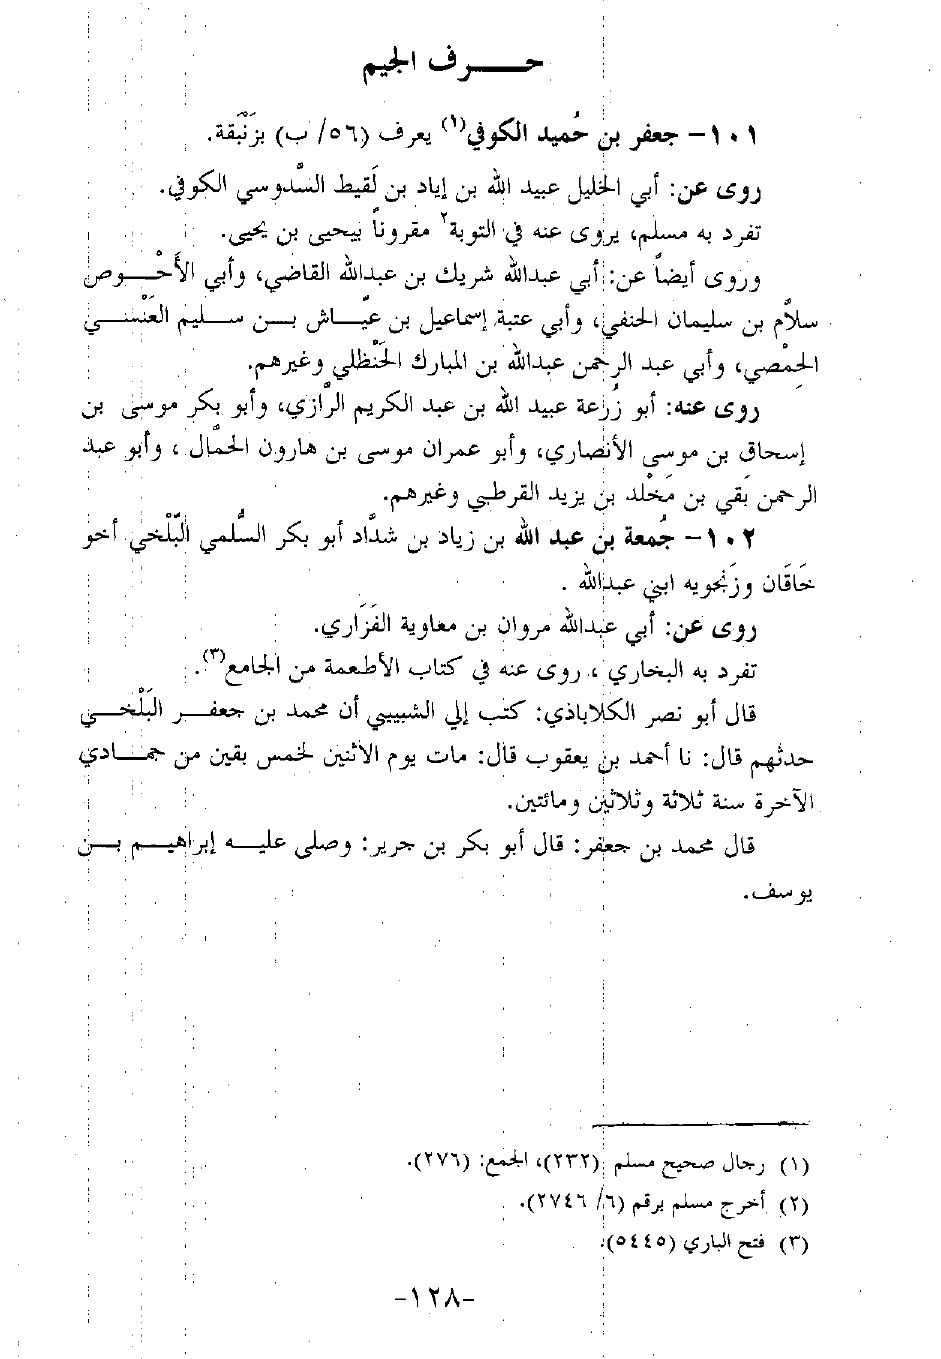 حـــرف الجيم
١٠١- جعفر بن حُميد الكوفي(١) يعرف (٥٦/ ب) بزَنْبَقة.
روى عن: أبي الخليل عبيد الله بن إياد بن لَقيط السَّدوسي الكوفي.
تفرد به مسلم، يروى عنه في التوبة٢ مقروناً بيحيى بن يحيى.
وروى أيضاً عن: أبي عبدالله شريك بن عبدالله القاضي، وأبي الأَحْــوص
سلاَّم بن سليمان الحنفي، وأبي عتبة إسماعيل بن عيَّــاش بــن ســليم العَنْســي
الحِمْصي، وأبي عبد الرحمن عبدالله بن المبارك الحَنْظلي وغيرهم.
روى عنه: أبو زُرعة عبيد الله بن عبد الكريم الرَّازي، وأبو بكر موسى بن
إسحاق بن موسى الأنصاري، وأبو عمران موسى بن هارون الحمَّال ، وأبو عبد
الرحمن بَقي بن مَخْلد بن يزيد القرطبي وغيرهم.
١٠٢- جُمعة بن عبد الله بن زياد بن شدَّاد أبو بكر السُّلمي البَلْخي أخو
خَاقَان وزَنجويه ابني عبدالله .
روى عن: أبي عبدالله مروان بن معاوية الفَزَاري.
تفرد به البخاري ، روى عنه في كتاب الأطعمة من الجامع(٣).
قال أبو نصر الكلاباذي: كتب إلي الشبيبي أن محمد بن جعفــر البَلْخــي
حدثهم قال: نا أحمد بن يعقوب قال: مات يوم الاثنين لخمس بقين من جمــادي
الآخرة سنة ثلاثة وثلاثين ومائتين.
قال محمد بن جعفر: قال أبو بكر بن جرير: وصلى عليــه إبراهيــم بــن
يوسف.
(١) رجال صحيح مسلم (٢٣٢)، الجمع: (٢٧٦).
(٢) أخرج مسلم برقم (٦/ ٢٧٤٦).
(٣) فتح الباري (٥٤٤٥).
-١٢٨-